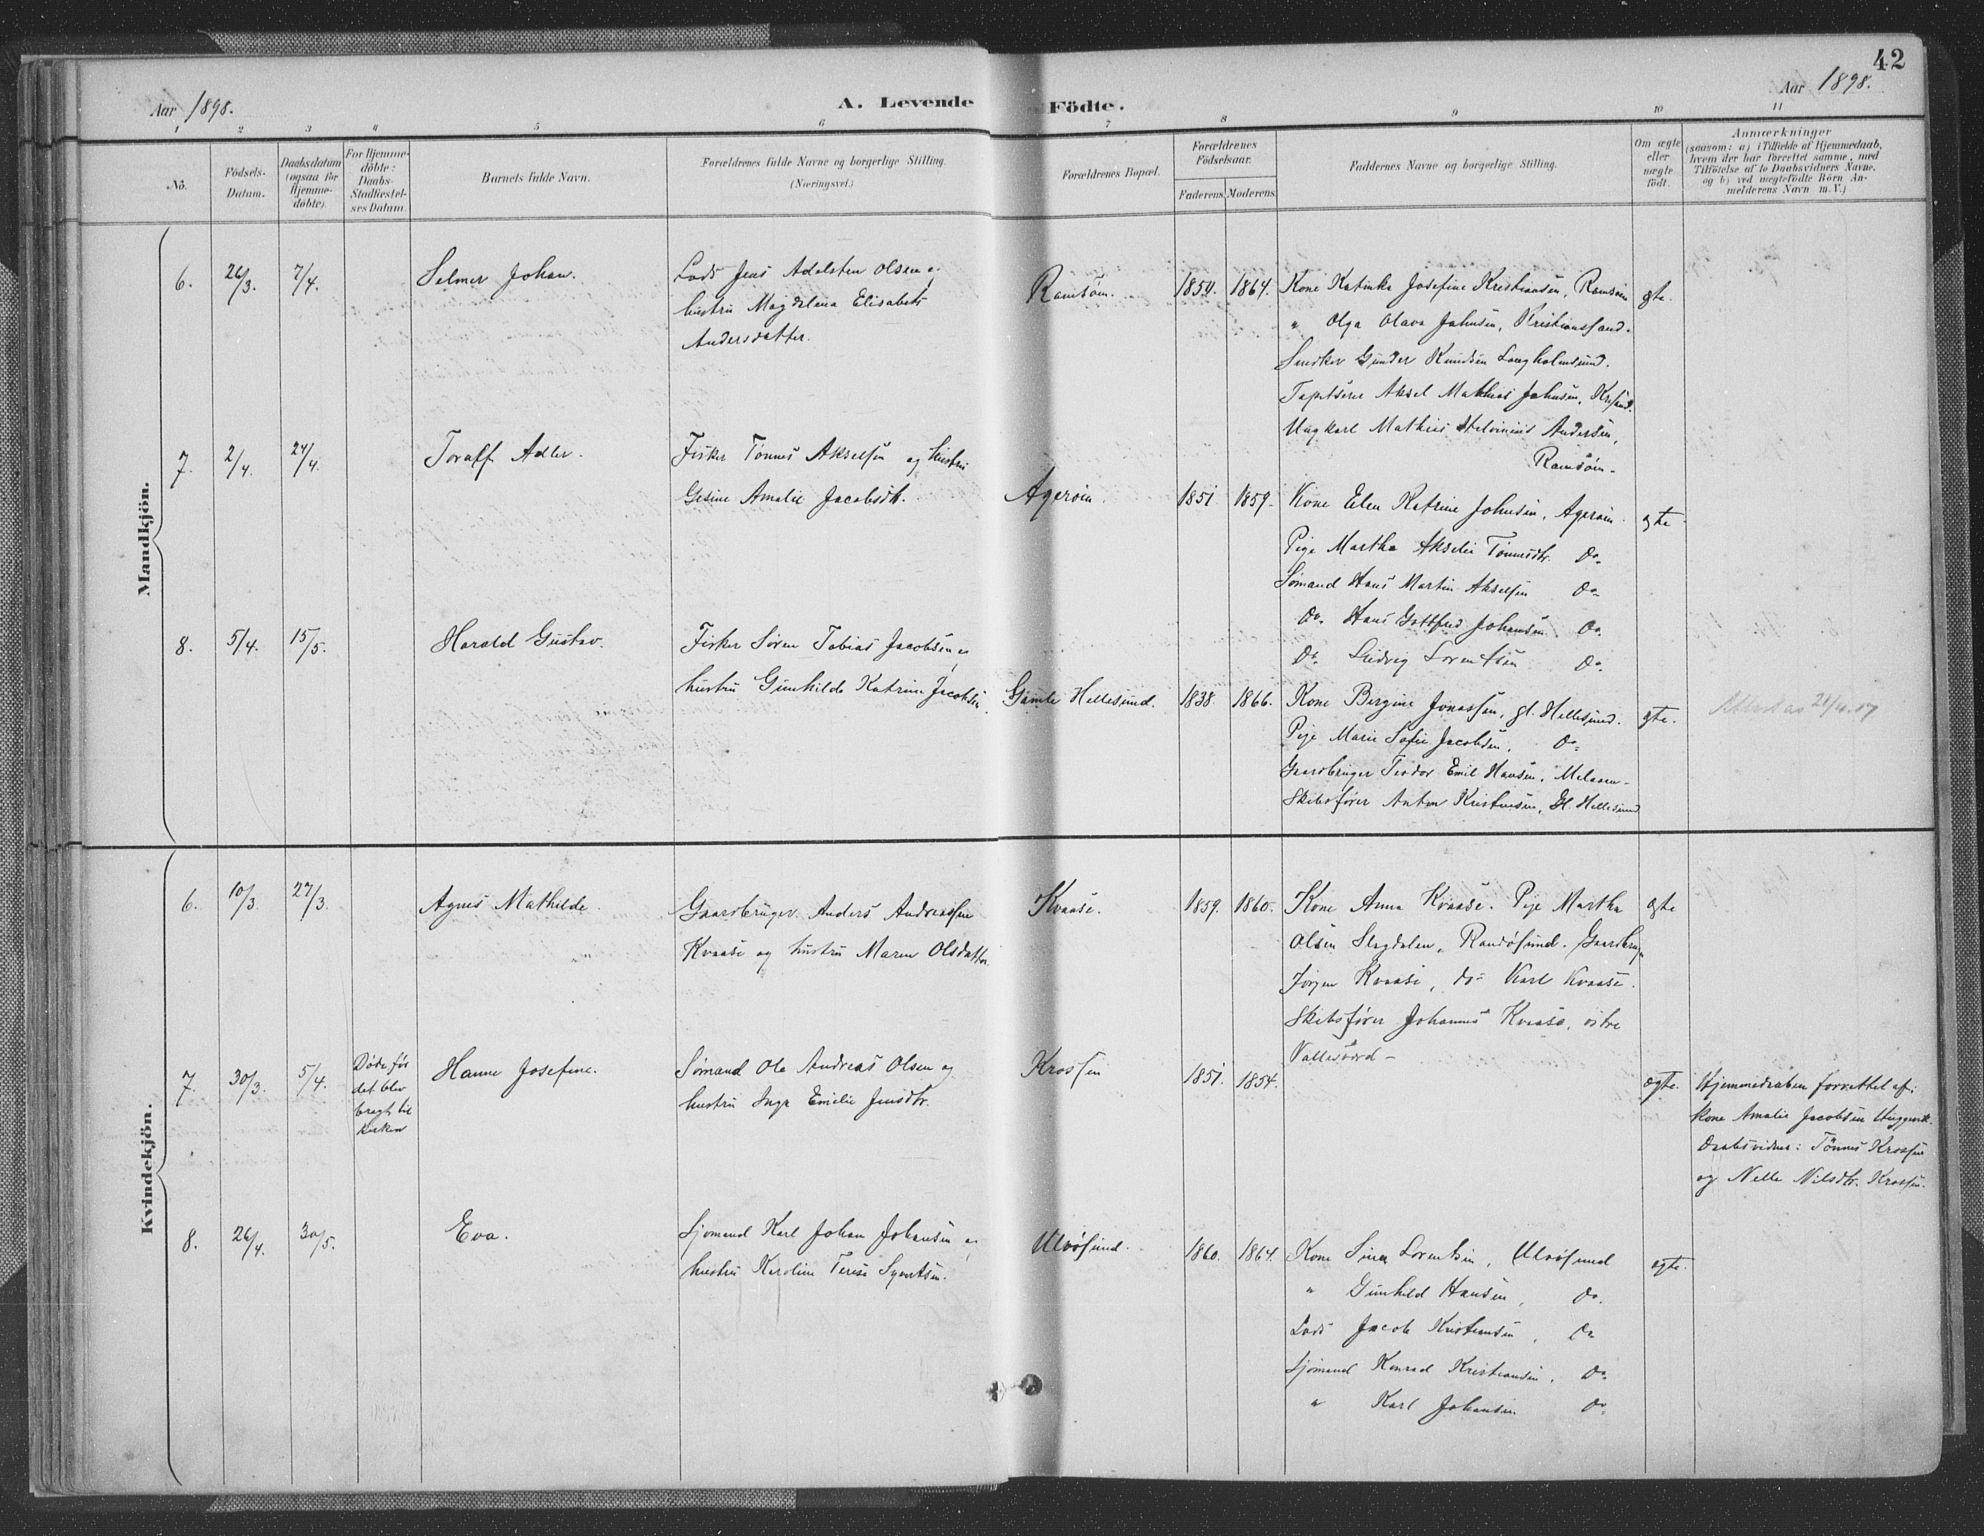 42
Aar 1898.
A. Levende Födte.
Aar 1898.
1 2 3 4 5 6 7 8 9 10 11
No.
Födsels-Datum.
Daabsdatum (ogsaa for Hjemme-döbte).
For Hjemme-döbte: Daabs-Stadfæstel-ses Datum.
Barnets fulde Navn.
Forældrenes fulde Navne og borgerlige Stilling.
(Næringsvei.)
Forældrenes Bopæl.
Forældrenes Födselsaar.
Faderens. Moderens.
Faddernes Navne og borgerlige Stilling.
Om ægte eller uægte födt.
Anmærkninger
(saasom: a) i Tilfælde af Hjemmedaab,
hvem der har forrettet samme, med
Tilföielse af to Daabsvidners Navne,
og b) ved uægtefödte Börn An-
melderens Navn m. V.)
Mandkjön.
6. 26/3. 7/4. Selmer Johan.
Lods Jens Adelsten Olsen og
hustru Magdalena Elisabeth
Andersdatter.
Ramsöen. 1854. 1864.
Kone Katinka Josefine Kristiansen, Ramsöen
" Olga Olava Johnsen, Kristianssand.
Snedker Gunder Knudsen Langholmsund.
Tapetserer Aksel Mathias Johnsen, Krsand.
Ungkarl Mathias Andersen,
Ramsöen.
ægte.
7. 2/4. 24/4. Toralf Adler.
Fisker Tönnes Akselsen og hustru
Gesine Amalie Jacobsdtr.
Ageröen. 1851. 1859.
Kone Elen Katrine Johnsen, Ageröen.
Pige Martha Akselie Tönnesdtr. Do.
Sömand Hans Martin Akselsen Do.
Do. Hans Gottfred Johansen Do.
Do. Ludvig Lorentsen Do.
ægte
8. 5/4. 15/5. Harald Gustav.
Fisker Sören Tobias Jacobsen og
hustru Gunhilde Katrine Jacobsen.
Gamle Hellesund. 1838. 1866.
Kone Bergine Jonassen, gl. Hellesund.
Pige Marie Sofie Jacobsen, Do.
Gaardbruger Teodor Emil Hansen,
Skibsförer Anton Kristensen, Gl. Hellesund
ægte.
Kvindekjön.
6. 10/3. 27/3. Agnes Mathilde.
Gaardbruger Anders Andreassen
Kvaase og hustru Maren Olsdatter.
Kvaase. 1859. 1860.
Kone Anna Kvaase. Pige Martha
Olsen Randösund. Gaardbrug.
Jörgen Kvaase, do- Karl Kvaase.
Skibsförer Johannes Kvaase, östre
Vallesværd-
ægte
7. 30/3. 5/4.
Döde för
det blev
bragt til
kirken
Hanne Josefine.
Sömand Ole Andreas Olsen og
hustru Inga Emilie Jensdtr.
Krossen 1851. 1854. ægte.
Hjemmedaaben forrettet af:
Kone Amalie Jacobsen
Daabsvidner: Tönnes Krossen
og Nelle Nilsdtr. Krossen.
8. 26/4. 30/5. Eva.
Sjömand Karl Johan Johansen og
hustru Karoline Terese Syvertsen.
Ulvösund. 1860. 1864.
Kone Sina Lorentsen, Ulvösund
" Gunhild Hansen, Do.
Lods Jacob Kristiansen, Do
Sjömand Konrad Kristiansen, Do.
" Karl Johansen Do.
ægte.